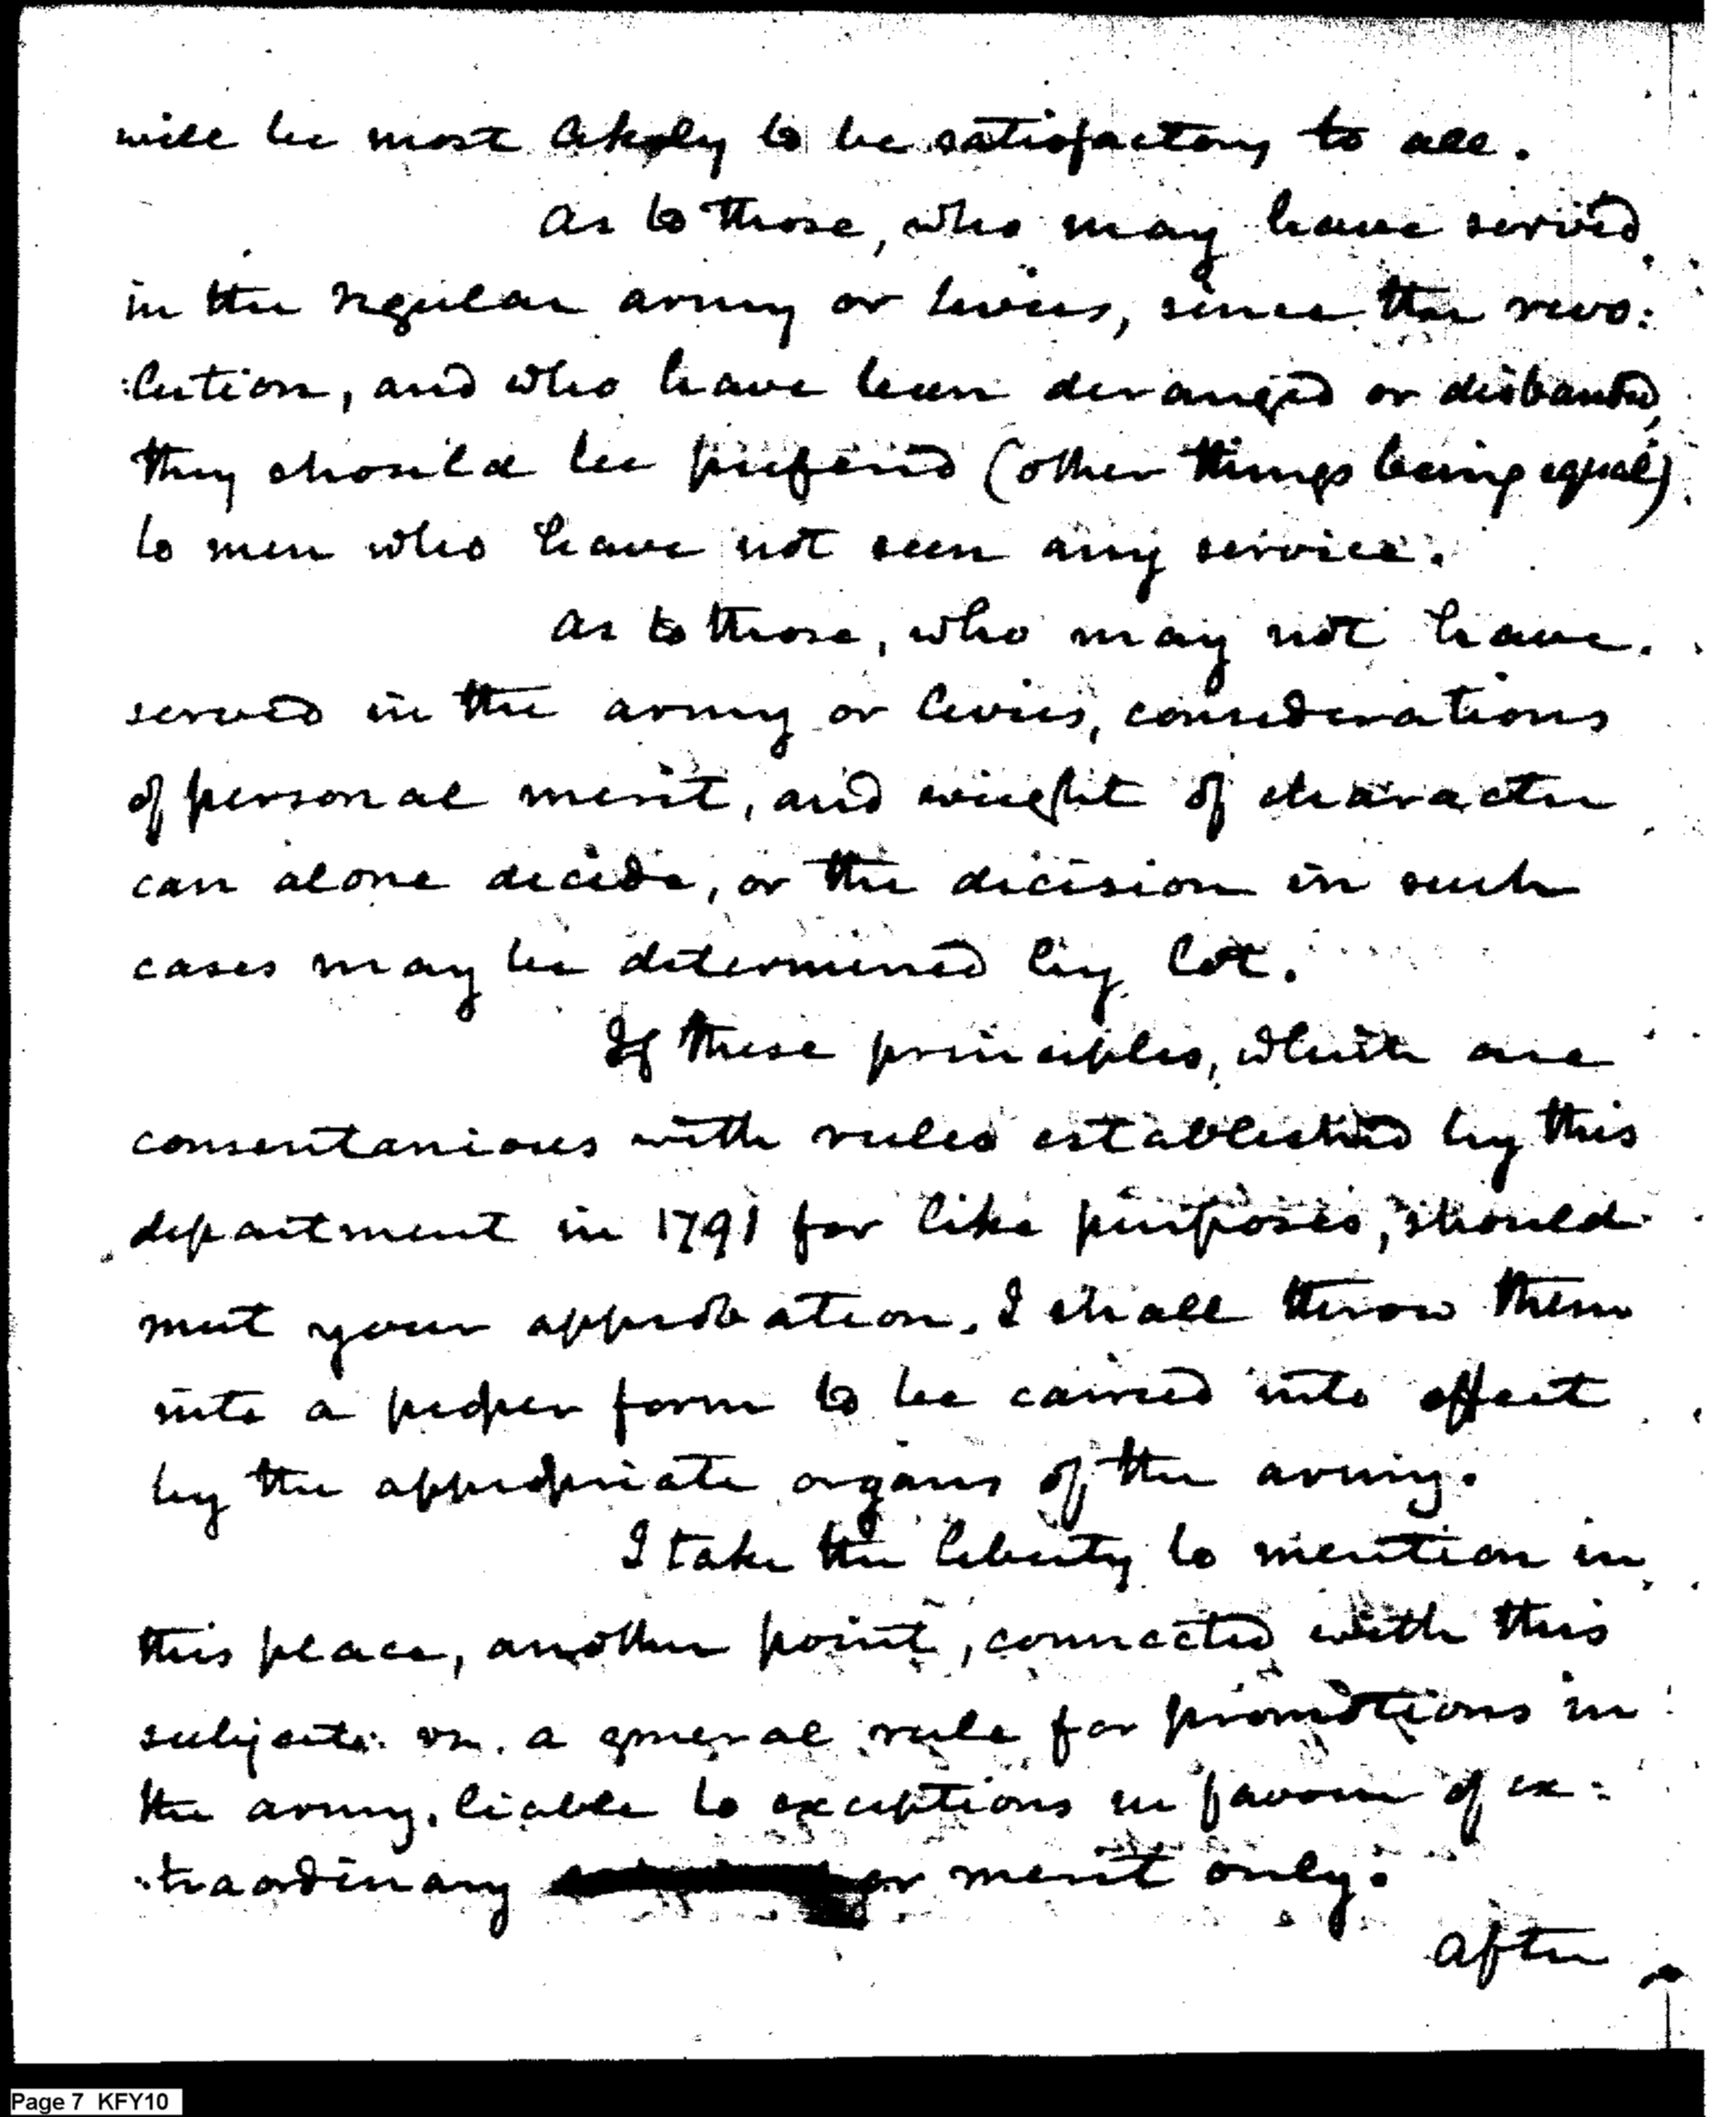 will be most likely to be satisfactory to all.
As to those, who may have served
in the regular army or levies, since the revo:
:lution, and who have been deranged or disbanded,
they should be prefered (other things being equal)
to men who have not seen any service.
As to those, who may not have
served in the army or levies, considerations
of personal merit, and weight of character
can alone decide, or the decision in such
cases may be determined by lot.
If these principles, which are
consentanious with rules established by this
department in 1791 for like purposes, should
meet your approbation, I shall throw them
into a proper form to be carried into effect
by the appropriate organs of the army.
I take the liberty to mention in
this place, another point, connected with this
subject: vz. a general rule for promotions in
the army, liable to exceptions in favour of ex:
:traordinary or merit only.
After
Page 7 KFY10